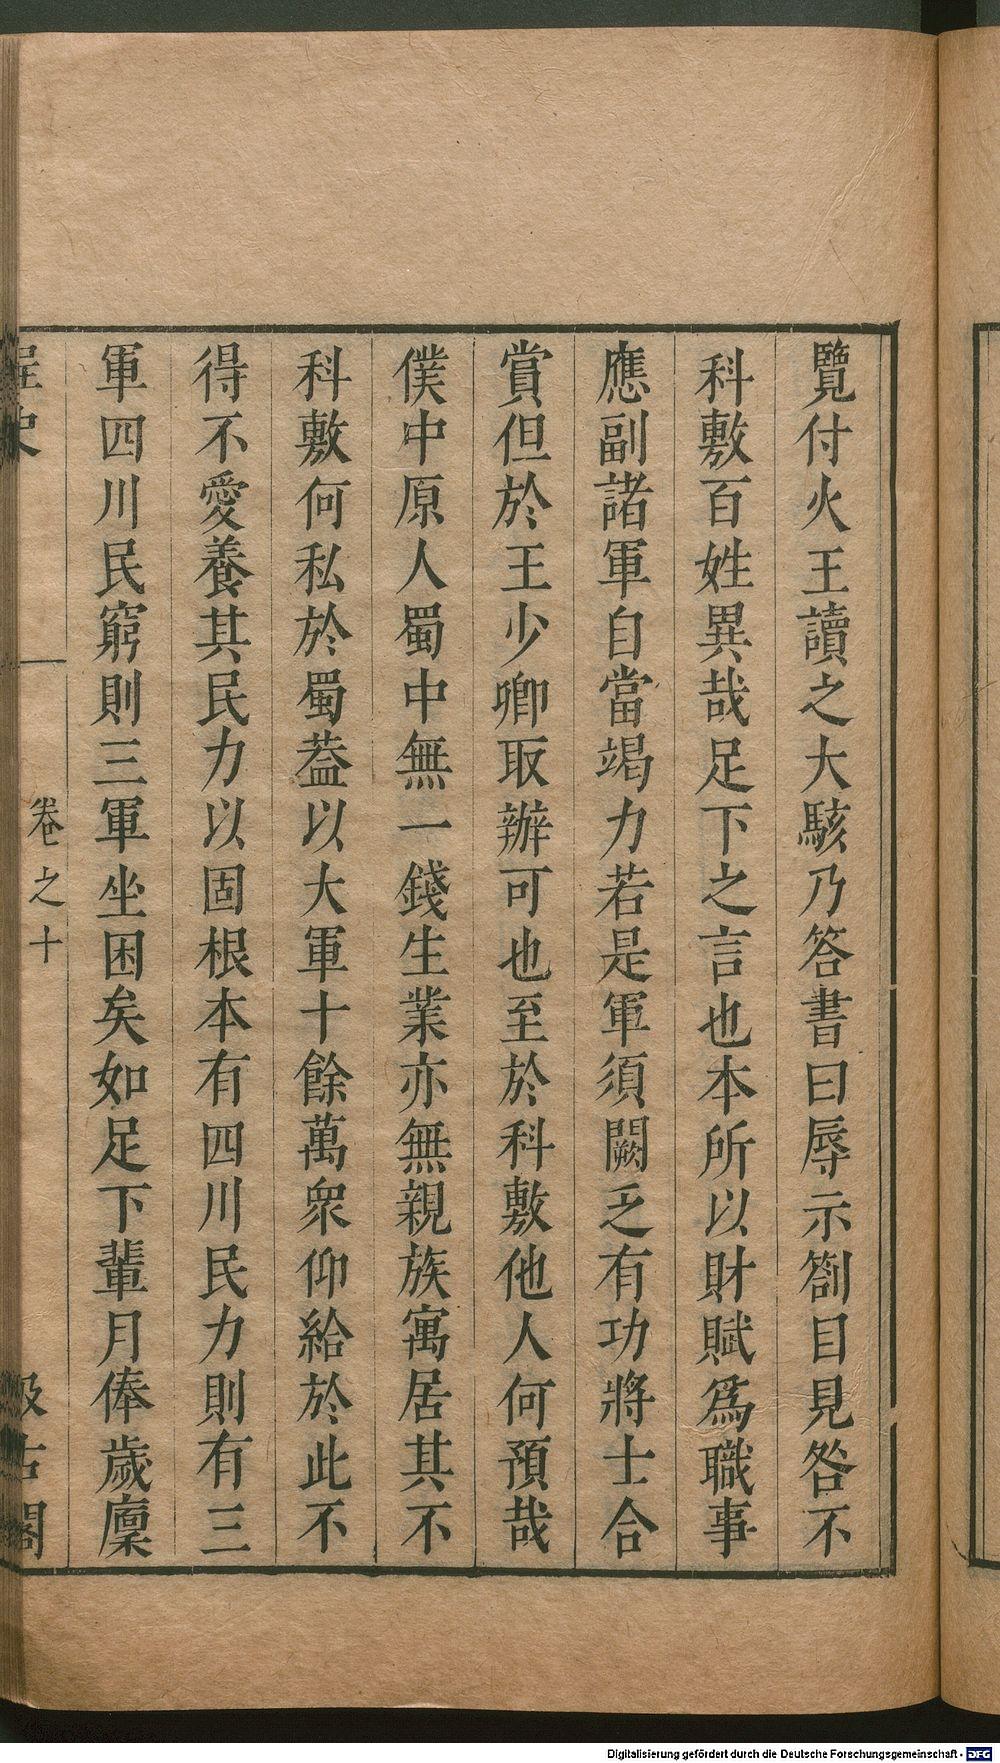 覽付火王讀之大駭乃答書曰辱示劄目見咎不
科敷百姓異哉足下之言也本所以財賦爲職事
應副諸軍自當竭力若是軍須闕乏有功將士合
賞但於王少卿取辦可也至於科敷他人何預哉
僕中原人蜀中無一錢生業亦無親族寓居其不
科敷何私於蜀葢以大軍十餘萬衆仰給於此不
得不愛養其民力以固根本有四川民力則有三
軍四川民窮則三軍坐困矣如足下輩月俸歲廩
史
卷之十
古閣
Digitalisierung gefördert durch die Deutsche Forschungsgemeinschaft - DFG